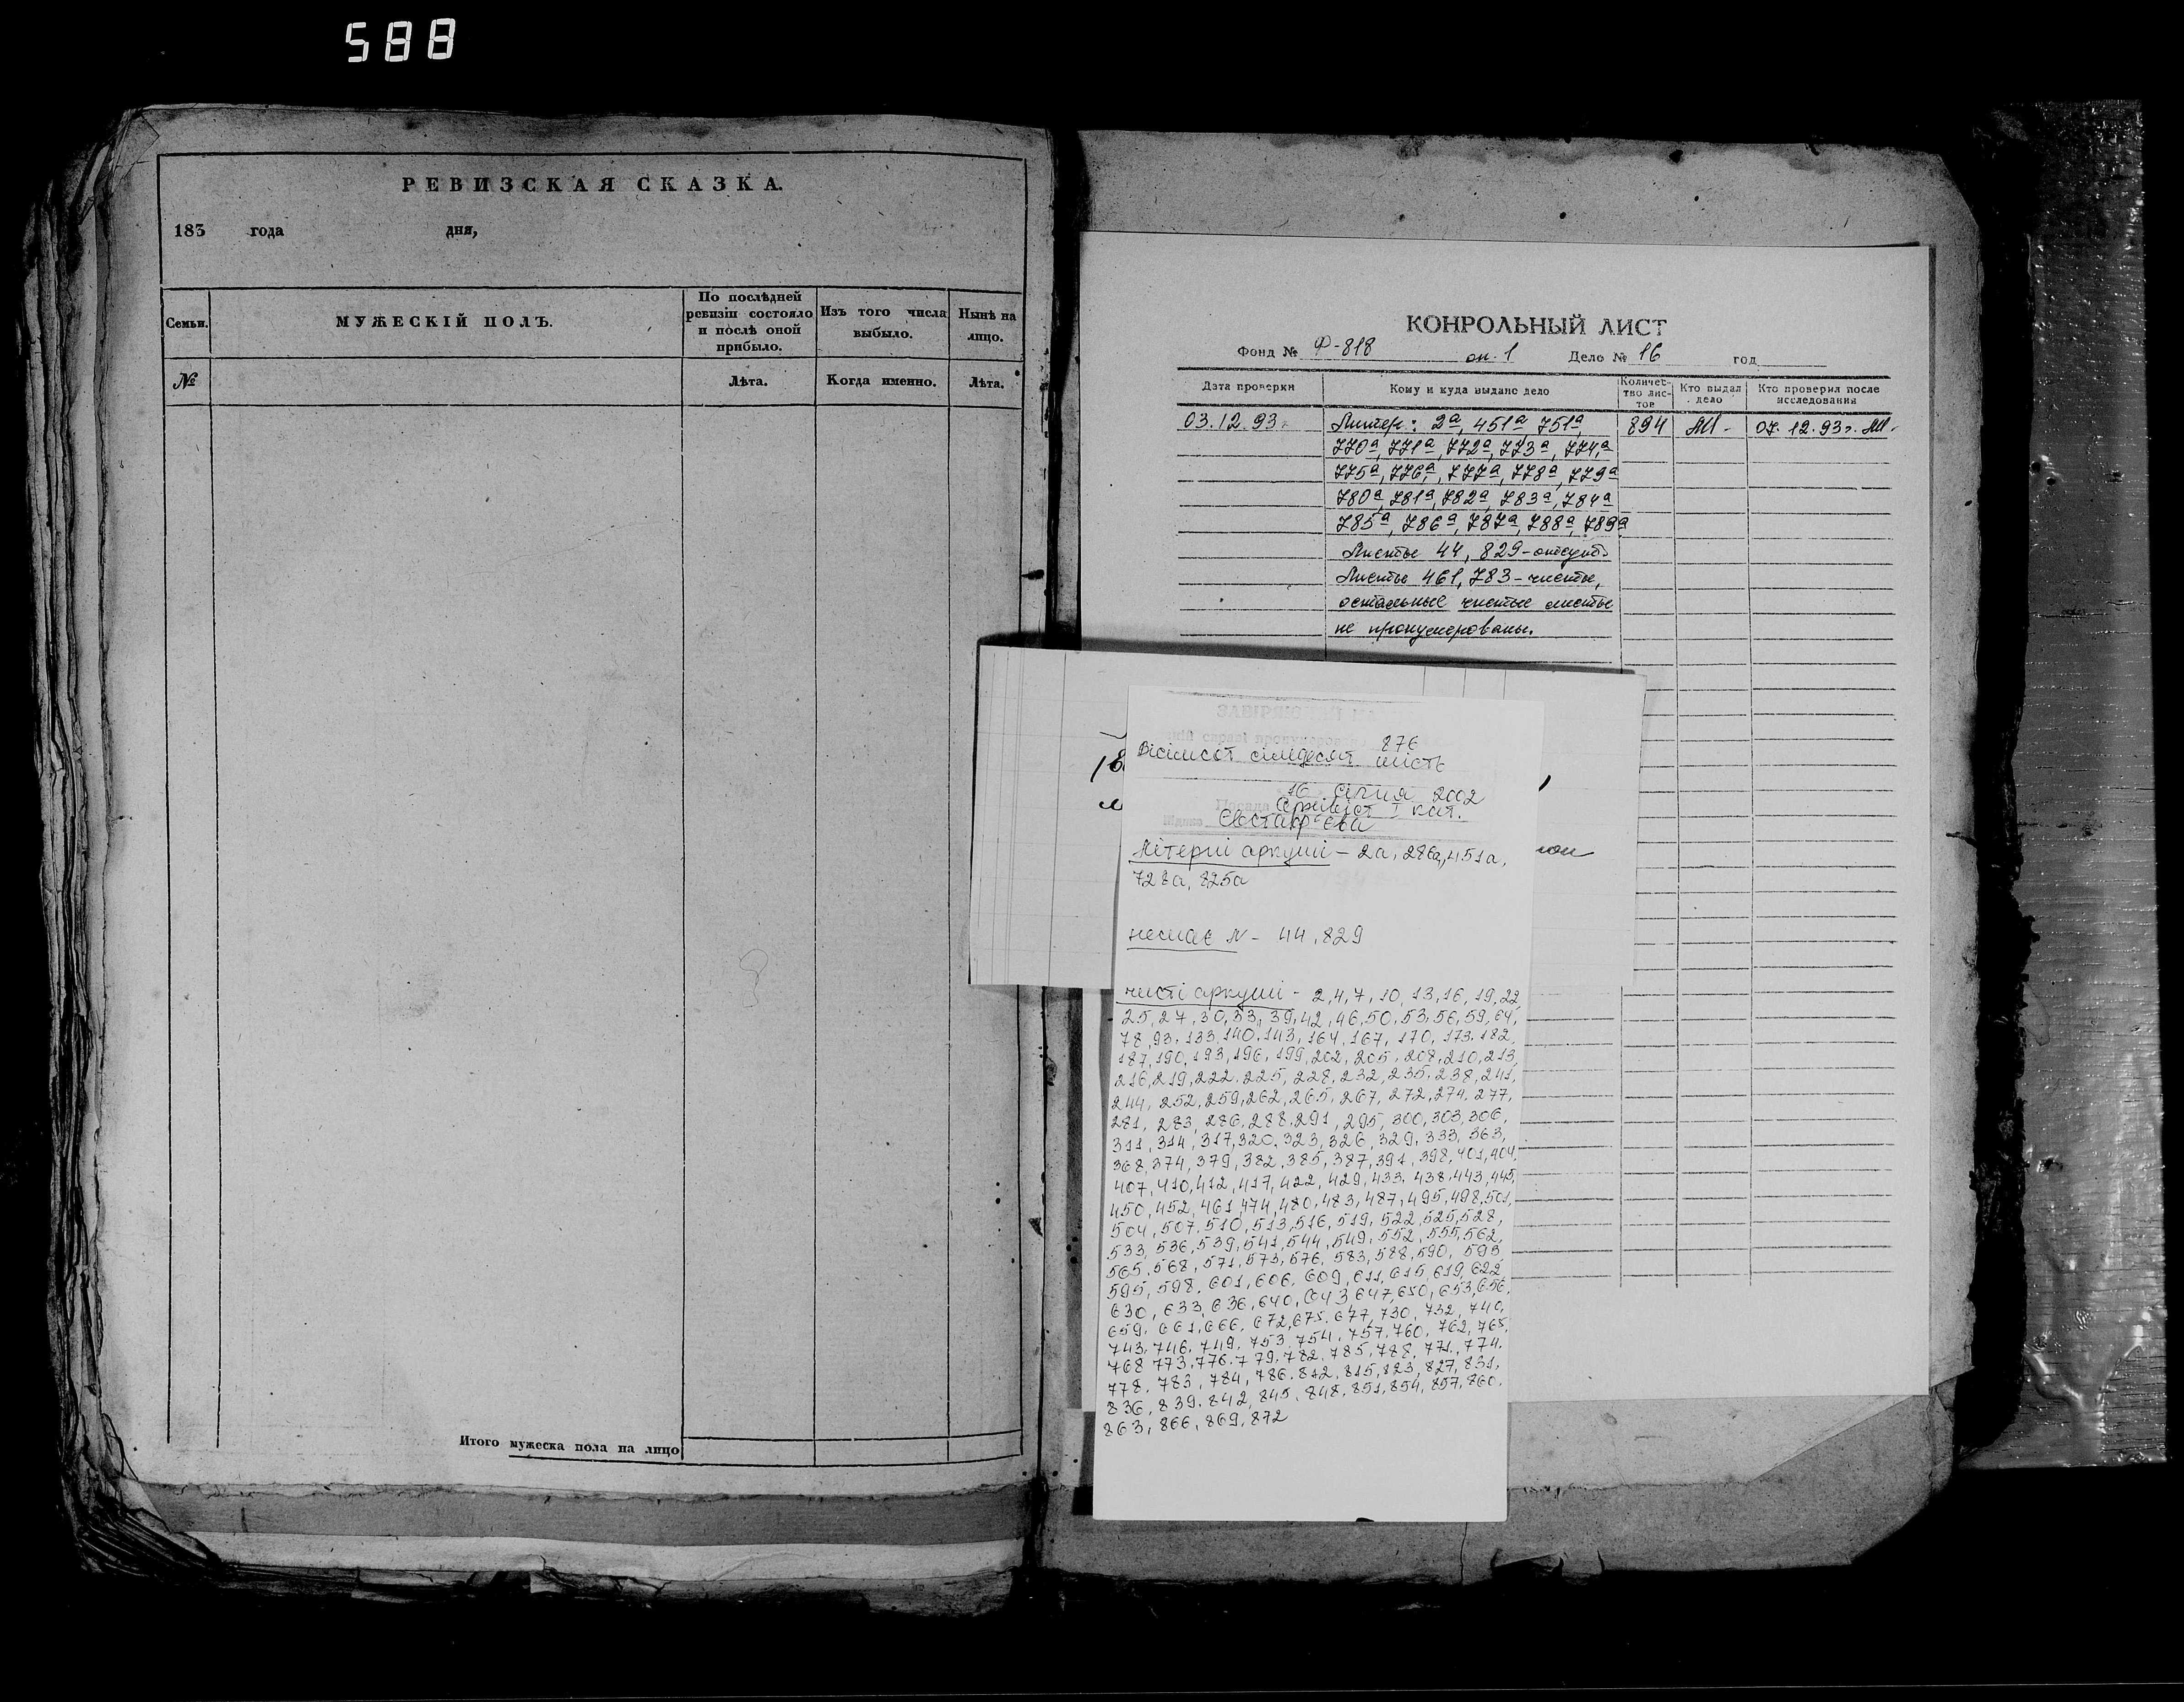 588
РЕВИЗСКАЯ СКАЗКА.
183 года дня,
Семьи.
МУЖЕСКІЙ ПОЛЪ.
По послѣдней
ревизіи состояло
и послѣ оной
прибыло.
Изъ того числа
выбыло.
Нынѣ на
лицо.
№
Лѣта.
Когда именно.
Лѣта.
Итого мужеска пола на лицо
КОНРОЛЬНЫЙ ЛИСТ
Фонд № Ф-818 оп. 1 Дело № 16 год
Дата проверки
Кому и куда выдано дело
Количес-
тво лис-
тов
Кто выдал
дело
Кто проверил после
исследования
03.12.93г Литер.: 2а, 451а, 751а, 894 07.12.93г.
770а, 771а, 772а, 773а, 774а
775а, 776а, 777а, 778а, 779а
780а, 781а, 782а, 783а, 784а
785а, 786а, 787а, 788а, 789а
Листы 44, 829 - отсутс
Листы 461, 783 - чисты,
остальные чистые листы
не пронумерованы.
876
Вісімсот сімдесят шість
16 січня 2002
Архівіст I кат.
Євстаф'єва
Літерні аркуші - 2а, 286а, 451а,
728а, 825а
немає № - 44, 829
чисті аркуші - 2, 4, 7, 10, 13, 16, 19, 22
25, 27, 30, 33, 39, 42, 46, 50, 53, 56, 59, 64,
78, 93, 133, 140, 143, 164, 167, 170, 173, 182,
187, 190, 193, 196, 199, 202, 205, 208, 210, 213,
216, 219, 222, 225, 228, 232, 235, 238, 241,
244, 252, 259, 262, 265, 267, 272, 274, 277,
281, 283, 286, 288, 291, 295, 300, 303, 306,
311, 314, 317, 320, 323, 326, 329, 333, 363,
368, 374, 379, 382, 385, 387, 391, 398, 401, 404,
407, 410, 412, 417, 422, 429, 433, 438, 443, 445,
450, 452, 461, 474, 480, 483, 487, 495, 498, 501,
504, 507, 510, 513, 516, 519, 522, 525, 528,
533, 536, 539, 541, 544, 549, 552, 555, 562,
565, 568, 571, 573, 576, 583, 588, 590, 593
595, 598, 601, 606, 609, 611, 615, 619, 622
630, 633, 636, 640, 643, 647, 650, 653, 656,
659, 661, 666, 672, 675, 677, 730, 732, 740,
743, 746, 749, 753, 754, 757, 760, 762, 765,
768, 773, 776, 779, 782, 785, 788, 771, 774,
778, 783, 784, 786, 812, 815, 823, 827, 831,
836, 839, 842, 845, 848, 851, 854, 857, 860,
863, 866, 869, 872